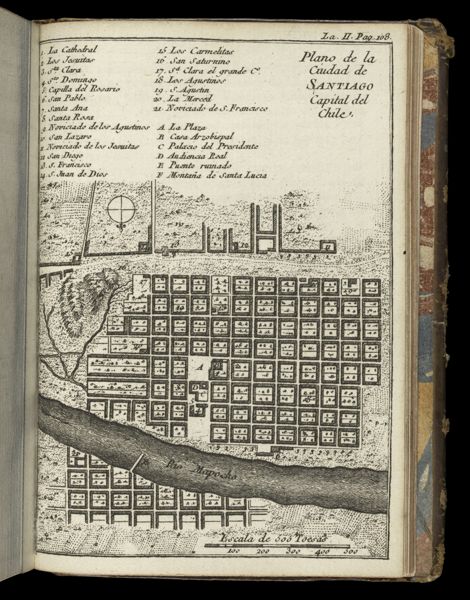 La. II. Pag. 108.
Plano de la
Ciudad de
SANTIAGO
Capital del
Chile.
1. La Cathedral
2. Los Jesuitas
3. Sta. Clara
4. Sto. Domingo
5. Capilla del Rosario
6. San Pablo
7. Santa Ana
8. Santa Rosa
9. Noviciado de los Agustinos
10. San Lazaro
11. Noviciado de los Jesuitas
12. San Diego
13. S. Francisco
14. S. Juan de Dios
15 Los Carmelitas
16 San Saturnino
17. Sta. Clara el grande C.
18. Los Agustinos
19. S. Agustin
20. La Merced
21. Noviciado de S. Francisco
A La Plaza
B Casa Arzobispal
C Palacio del Presidente
D Audiencia Real
E Puente ruinado
F Montaña de Santa Lucia
A
Rio Mapocho
Escala de 500 Toesas
100 200 300 400 500